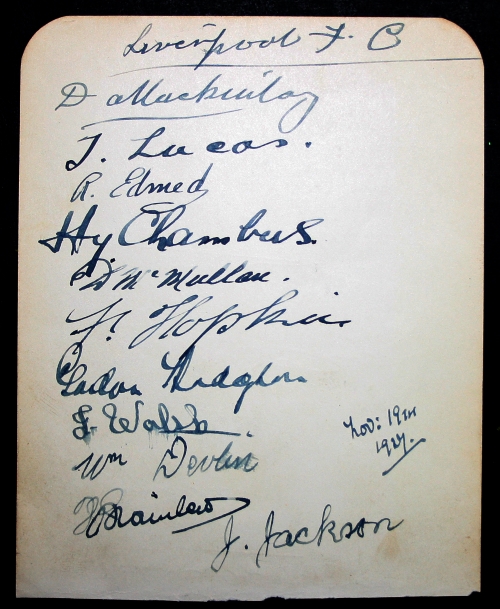 Liverpool F. C
D Mackinlay
T. Lucas.
R. Edmed
Hy Chambers.
D McMullan.
F. Hopkin
Gordon Hodgson
J. Walsh
Nov: 19TH
1927.
Wm Devlin
J. Jackson